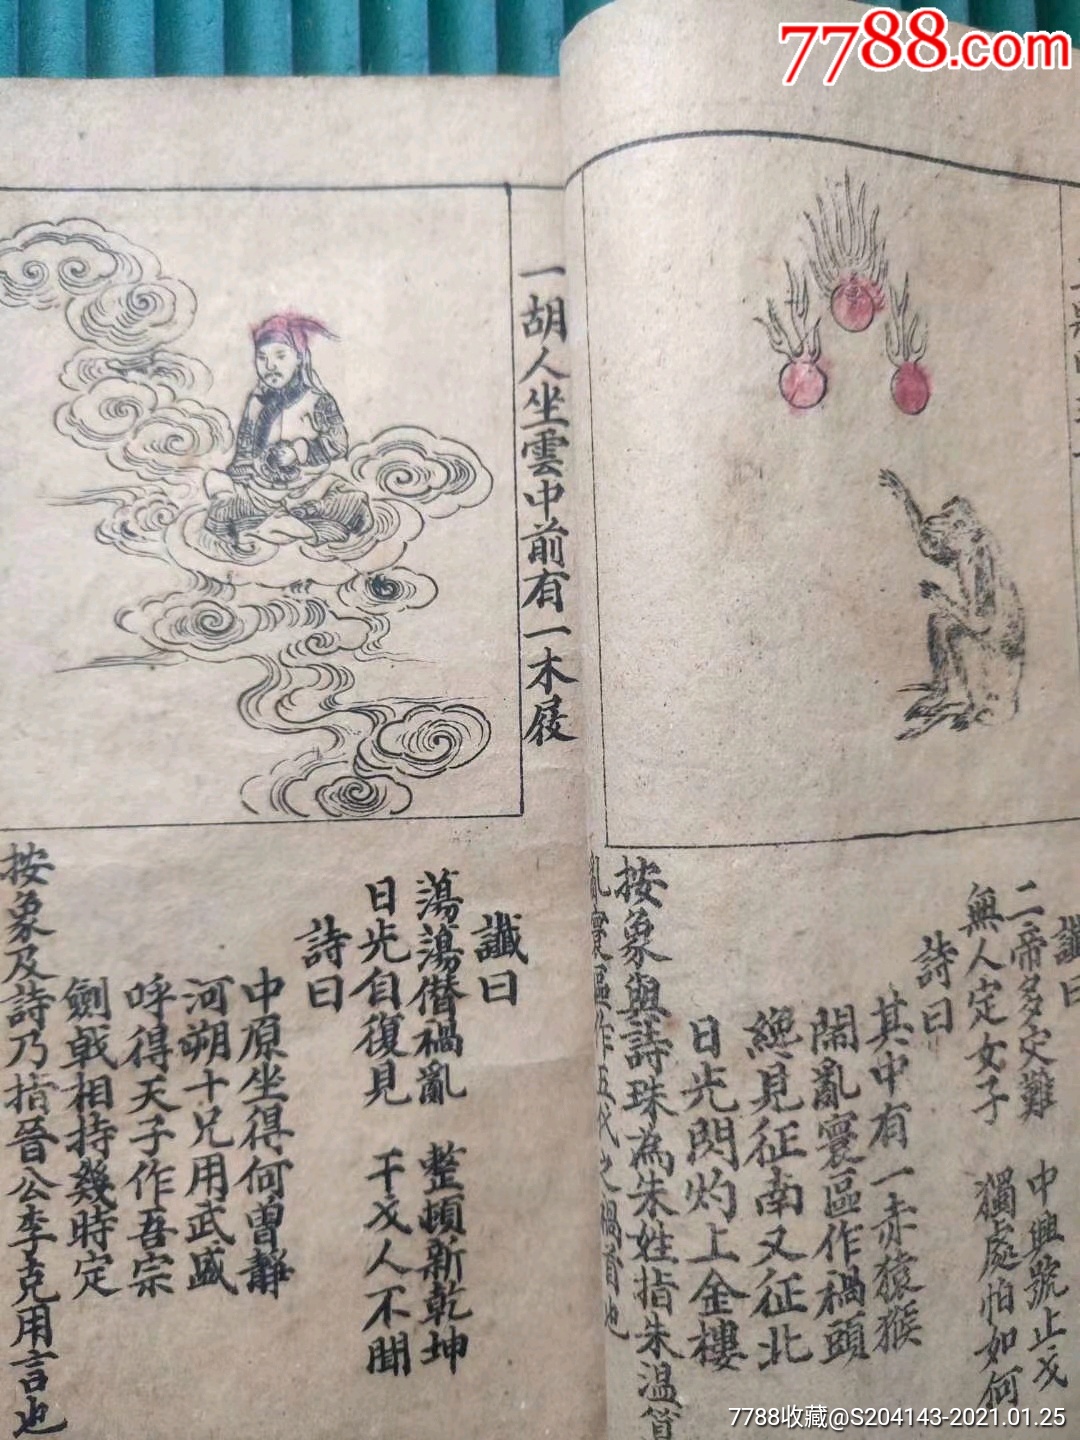 7788.com
讖曰
二帝多灾難　中興號止戈
無人定女子　獨處怕如何
詩曰
其中有一赤猿猴
鬧亂寰區作禍頭
纔見征南又征北
日光閃灼上金樓
按象與詩珠為朱姓指朱温篡
亂寰區作五代之禍首也
一胡人坐雲中前有一木屐
讖曰
蕩蕩僣禍亂　整頓新乾坤
日光自復見　干戈人不聞
詩曰
中原坐得何曾靜
河朔十兄用武盛
呼得天子作吾宗
劍戟相持幾時定
按象及詩乃指晉公李克用言也
7788收藏@S204143-2021.01.25